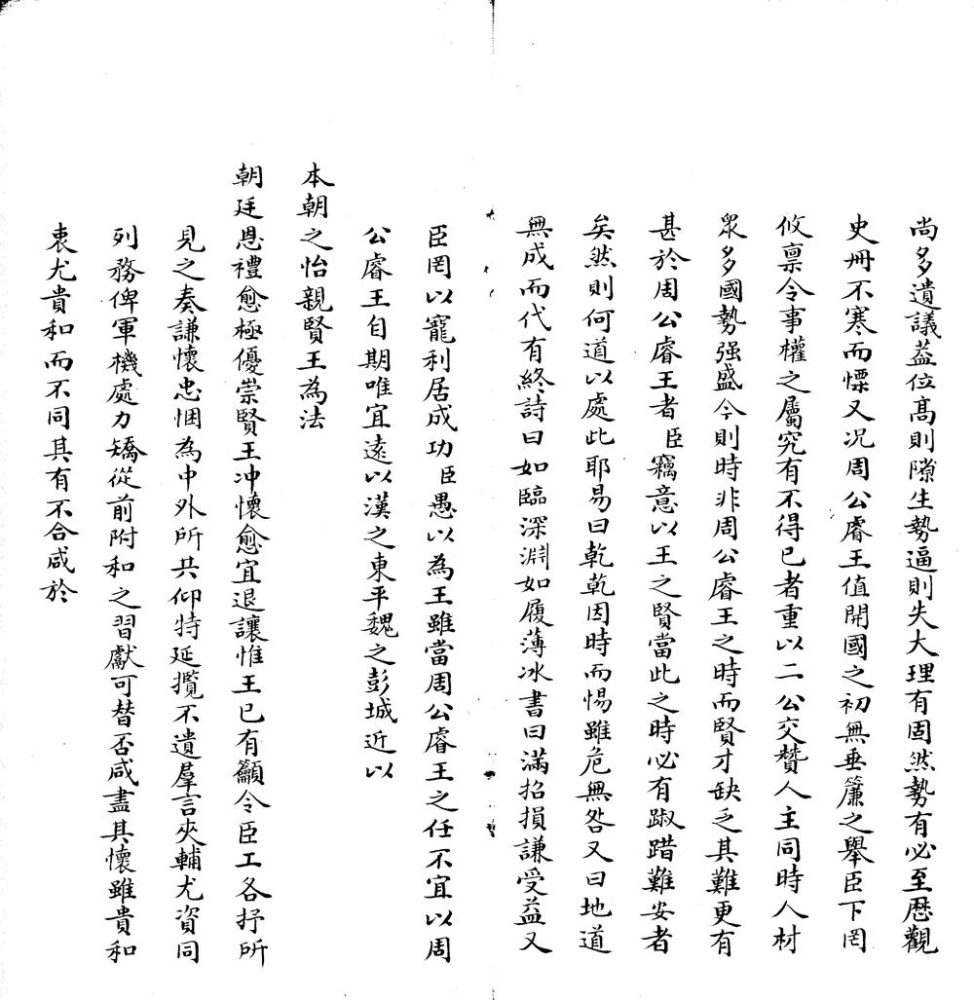 尚多遺議葢位髙則隙生勢逼則失大理有固然勢有必至歷觀
史冊不寒而慄又况周公睿王值開國之初無垂簾之舉臣下罔
攸禀令事權之屬究有不得已者重以二公交贊人主同時人材
眾多國勢强盛今則時非周公睿王之時而賢才缺乏其難更有
甚於周公睿王者臣竊意以王之賢當此之時必有踧踖難安者
矣然則何道以處此耶易曰乾乾因時而惕雖危無咎又曰地道
無成而代有終詩曰如臨深淵如履薄冰書曰滿招損謙受益又
臣罔以寵利居成功臣愚以為王雖當周公睿王之任不宜以周
公睿王自期唯宜遠以漢之東平魏之彭城近以
本朝之怡親賢王為法
朝廷恩禮愈極優崇賢王冲懷愈宜退讓惟王已有籲令臣工各抒所
見之奏謙懷忠悃為中外所共仰特延攬不遺羣言夾輔尤資同
列務俾軍機處力矯從前附和之習獻可替否咸盡其懷雖貴和
衷尤貴和而不同其有不合咸於